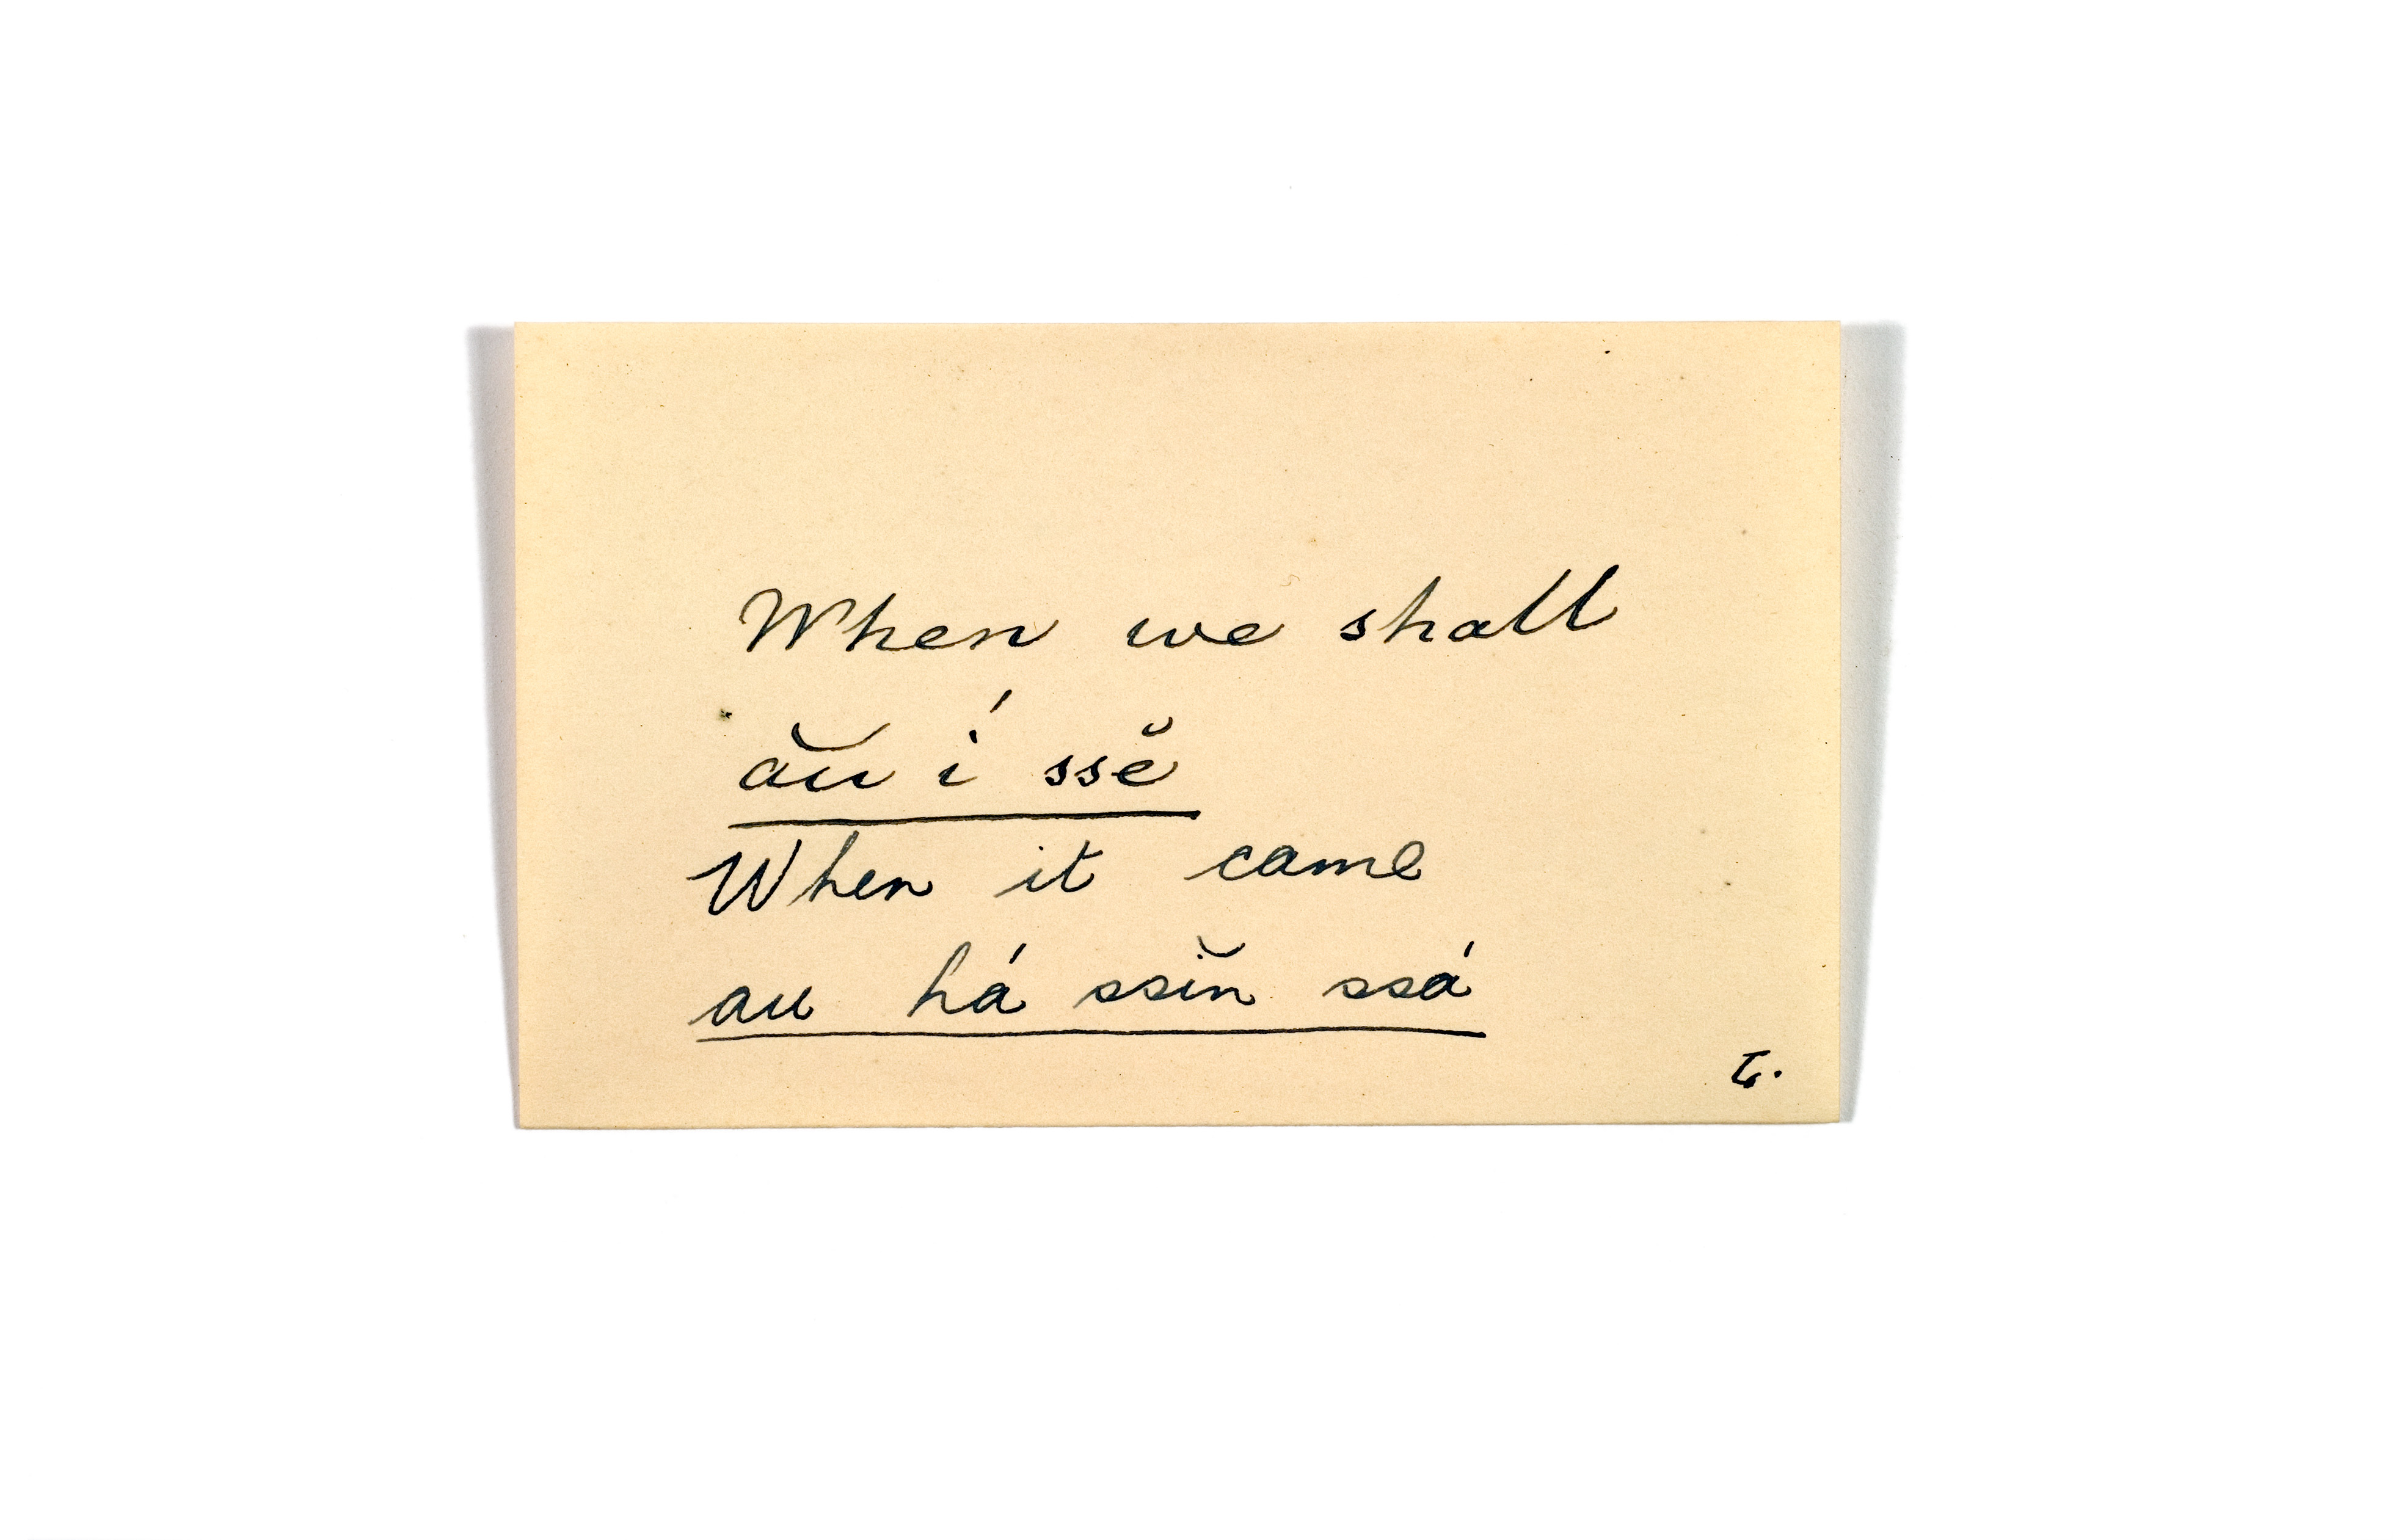 When we shall
ău í ssĕ
When it came
au há ssĭn ssá